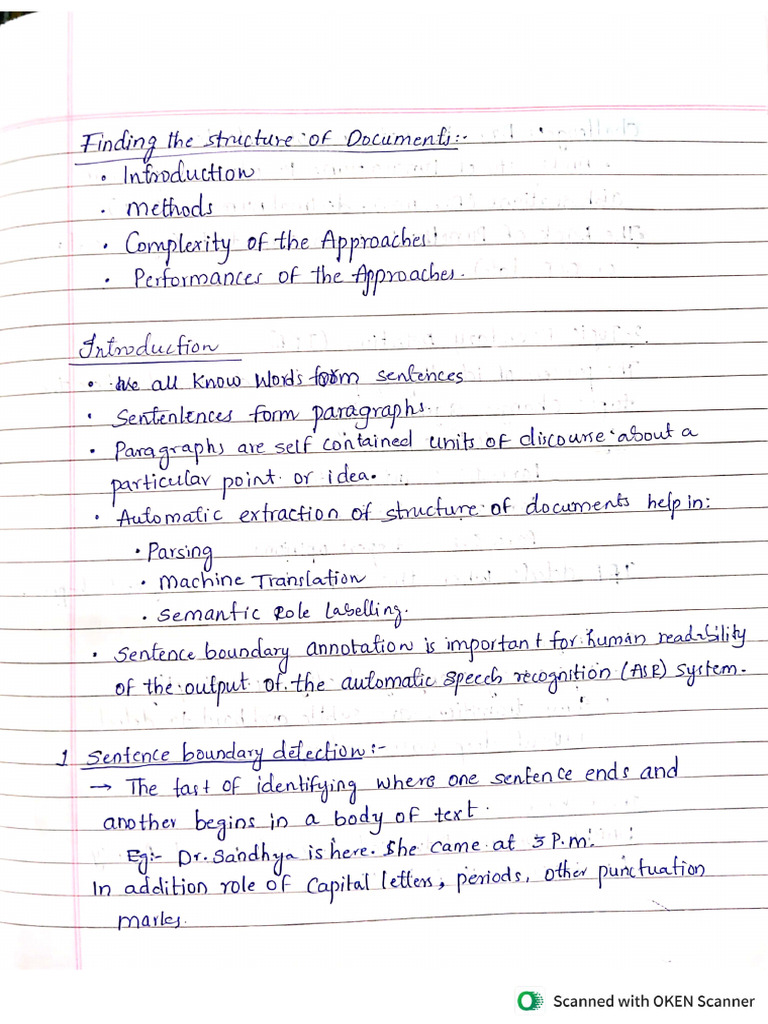 Finding the structure of Documents:-
• Introduction
• methods
• Complexity of the Approaches
• Performances of the Approaches.
Introduction
• We all know words form sentences
• Sentenlences form paragraphs.
• Paragraphs are self contained units of discourse about a
particular point or idea.
• Automatic extraction of structure of documents help in:
• Parsing
• Machine Translation
• Semantic Role Labelling.
• Sentence boundary annotation is important for human readability
of the output of the automatic speech recognition (ASR) system.
1 Sentence boundary detection:-
→ The tast of identifying where one sentence ends and
another begins in a body of text.
Eg:- Dr. Sandhya is here. She came at 3 P.m.
In addition role of Capital letters, periods, other punctuation
marks.
Scanned with OKEN Scanner